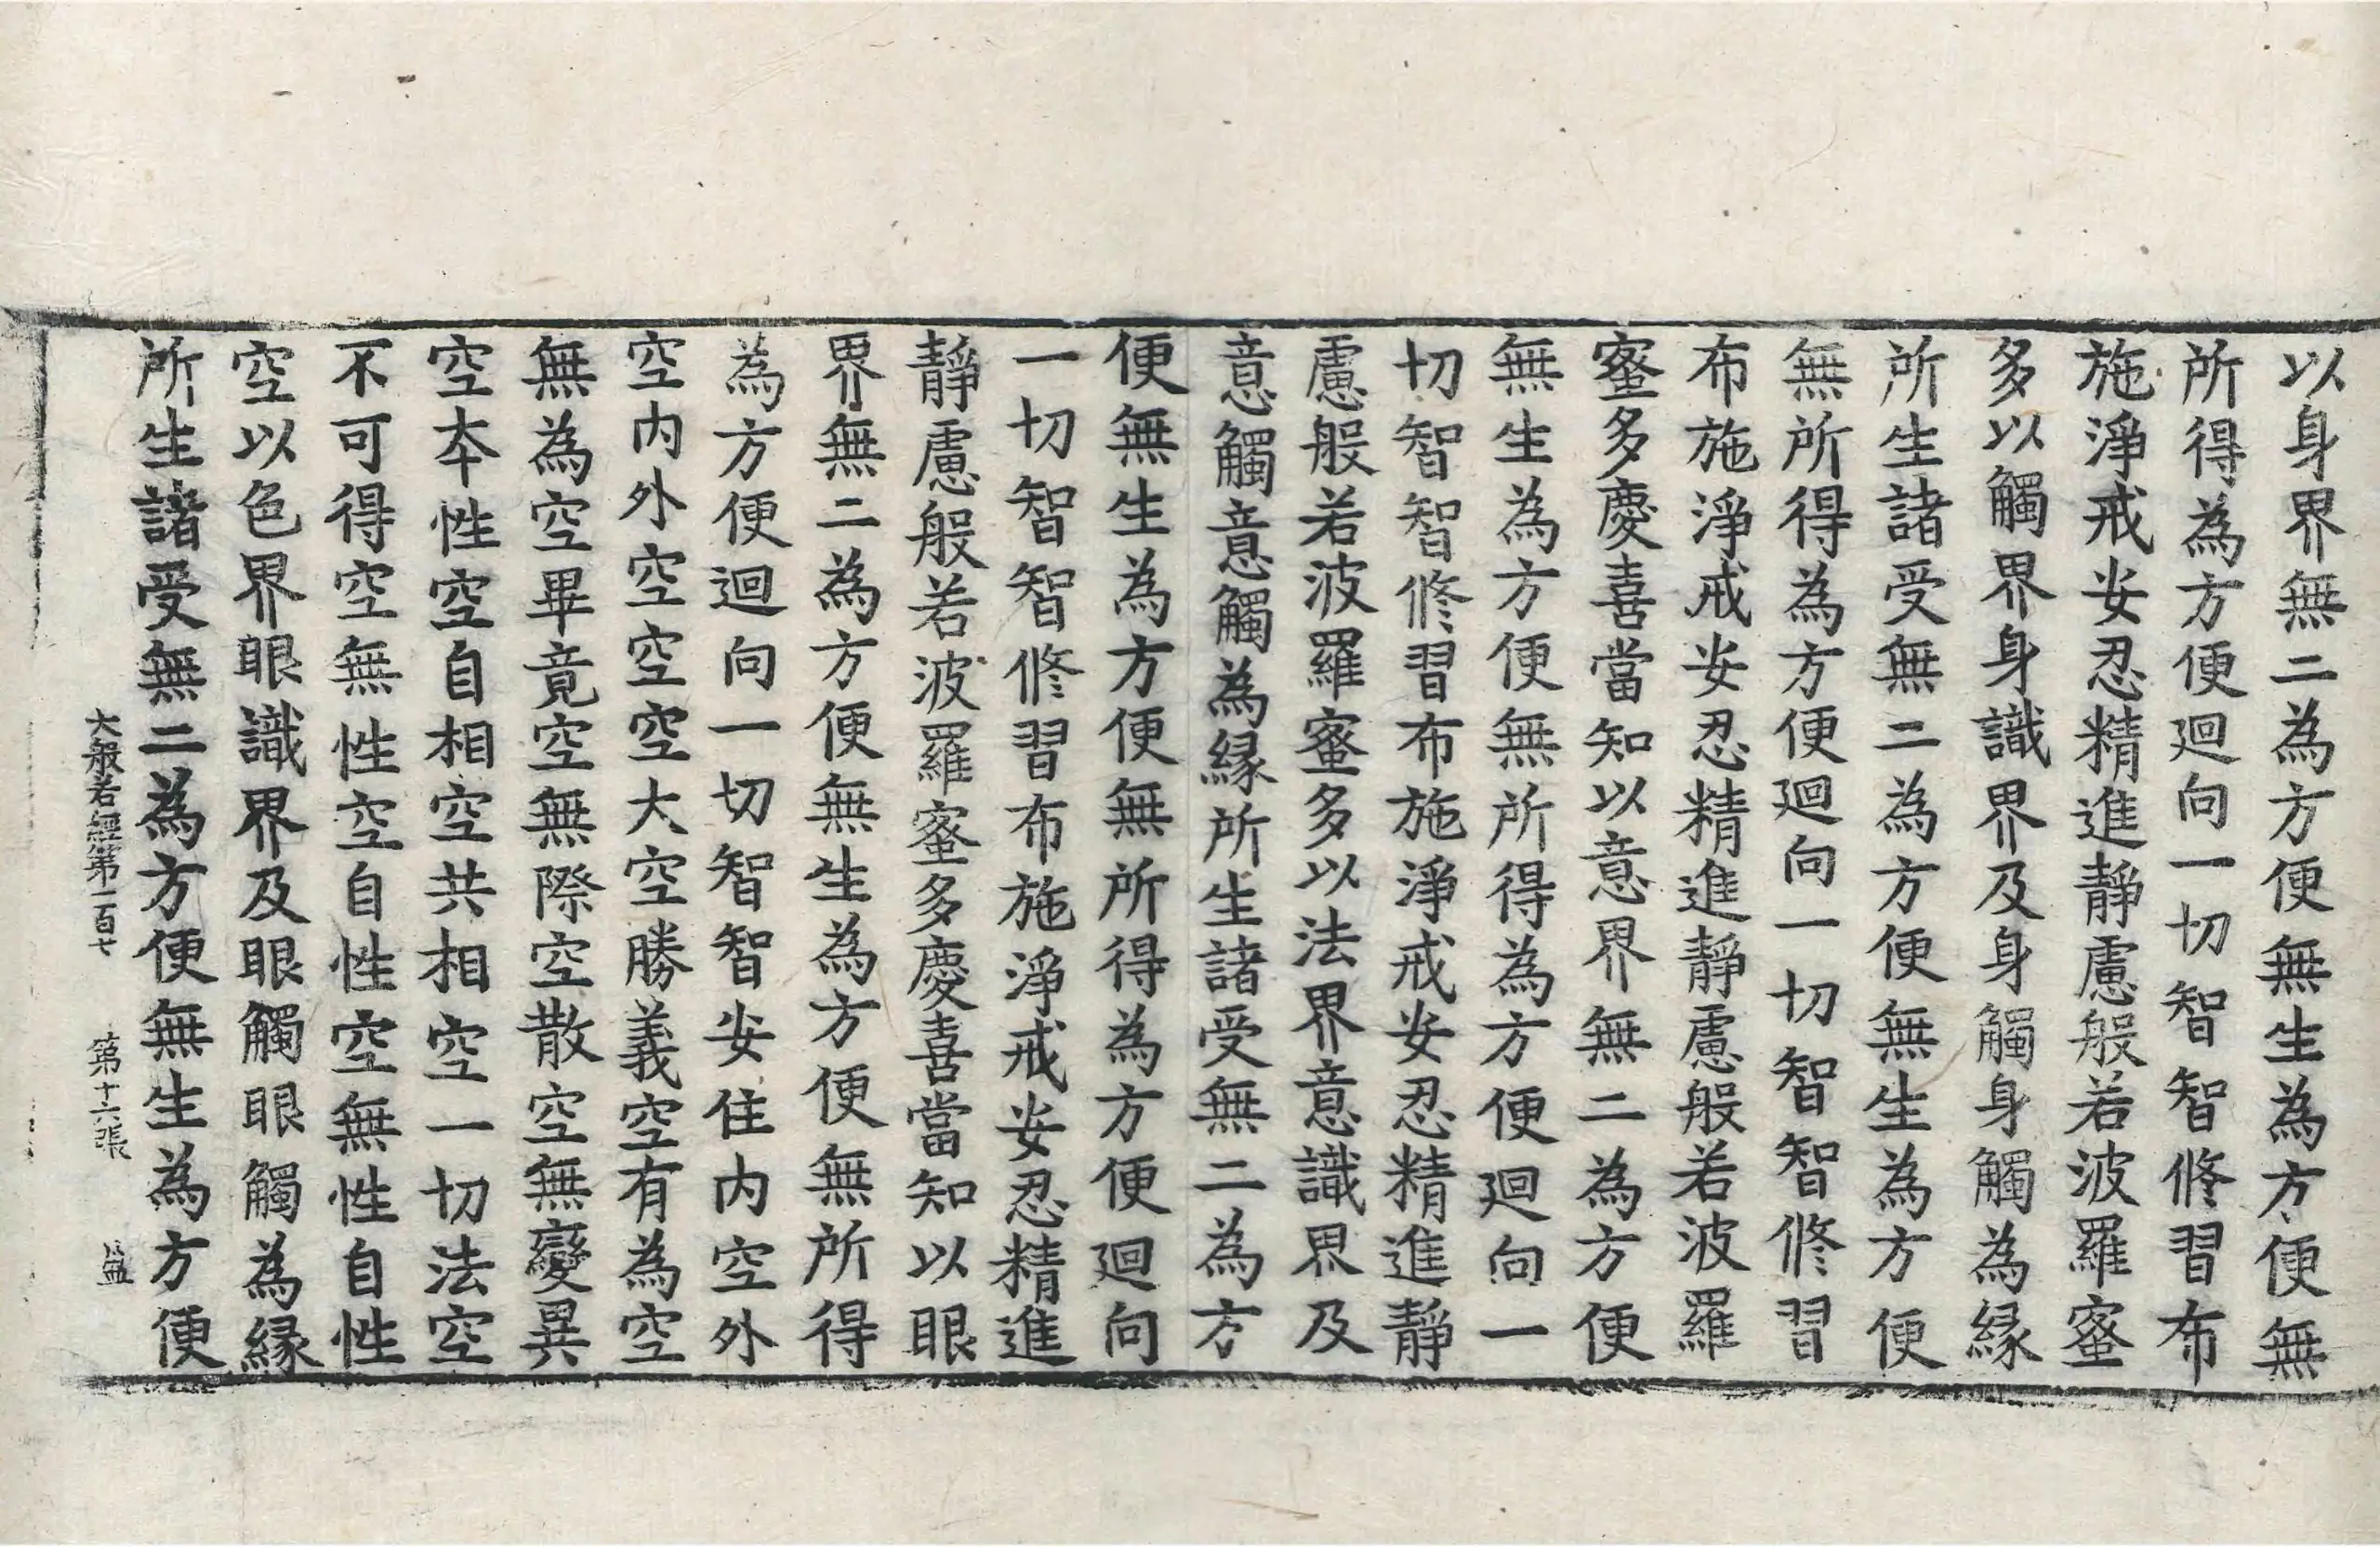 以身界無二為方便無生為方便無
所得為方便迴向一切智智修習布
施淨戒安忍精進靜慮般若波羅蜜
多以觸界身識界及身觸身觸為緣
所生諸受無二為方便無生為方便
無所得為方便迴向一切智智修習
布施淨戒安忍精進靜慮般若波羅
蜜多慶喜當知以意界無二為方便
無生為方便無所得為方便迴向一
切智智修習布施淨戒安忍精進靜
慮般若波羅蜜多以法界意識界及
意觸意觸為緣所生諸受無二為方
便無生為方便無所得為方便迴向
一切智智修習布施淨戒安忍精進
靜慮般若波羅蜜多慶喜當知以眼
界無二為方便無生為方便無所得
為方便迴向一切智智安住內空外
空內外空空空大空勝義空有為空
無為空畢竟空無際空散空無變異
空本性空自相空共相空一切法空
不可得空無性空自性空無性自性
空以色界眼識界及眼觸眼觸為緣
所生諸受無二為方便無生為方便
大般若經第一百七 第十六張 盈